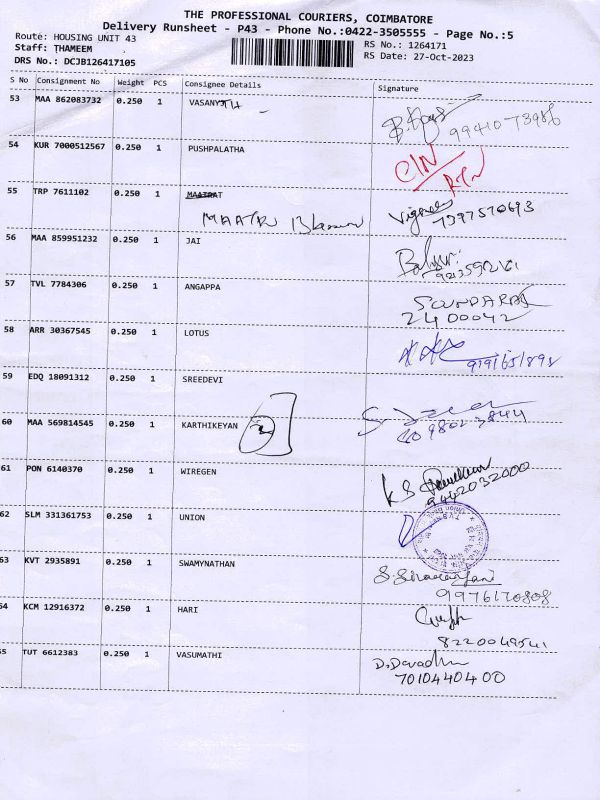 THE PROFESSIONAL COURIERS, COIMBATORE
Delivery Runsheet - P43 - Phone No.:0422-3505555 - Page No.:5
Route: HOUSING UNIT 43
Staff: THAMEEM
DRS No.: DCJB126417105
RS No.: 1264171
RS Date: 27-Oct-2023
S No Consignment No Weight PCS Consignee Details Signature
53 MAA 862083732 0.250 1 VASANYTH
99410-73986
54 KUR 7000512567 0.250 1 PUSHPALATHA
55 TRP 7611102 0.250 1
MAATRI
7397570693
56 MAA 859951232 0.250 1 JAI
57 TVL 7784306 0.250 1 ANGAPPA
SOUNDARAJ
2400042
58 ARR 30367545 0.250 1 LOTUS
59 EDQ 18091312 0.250 1 SREEDEVI
60 MAA 569814545 0.250 1 KARTHIKEYAN
61 PON 6140370 0.250 1 WIREGEN
9442032000
62 SLM 331361753 0.250 1 UNION
63 KVT 2935891 0.250 1 SWAMYNATHAN
9976170808
64 KCM 12916372 0.250 1 HARI
8220049541
65 TUT 6612383 0.250 1 VASUMATHI
7010440400